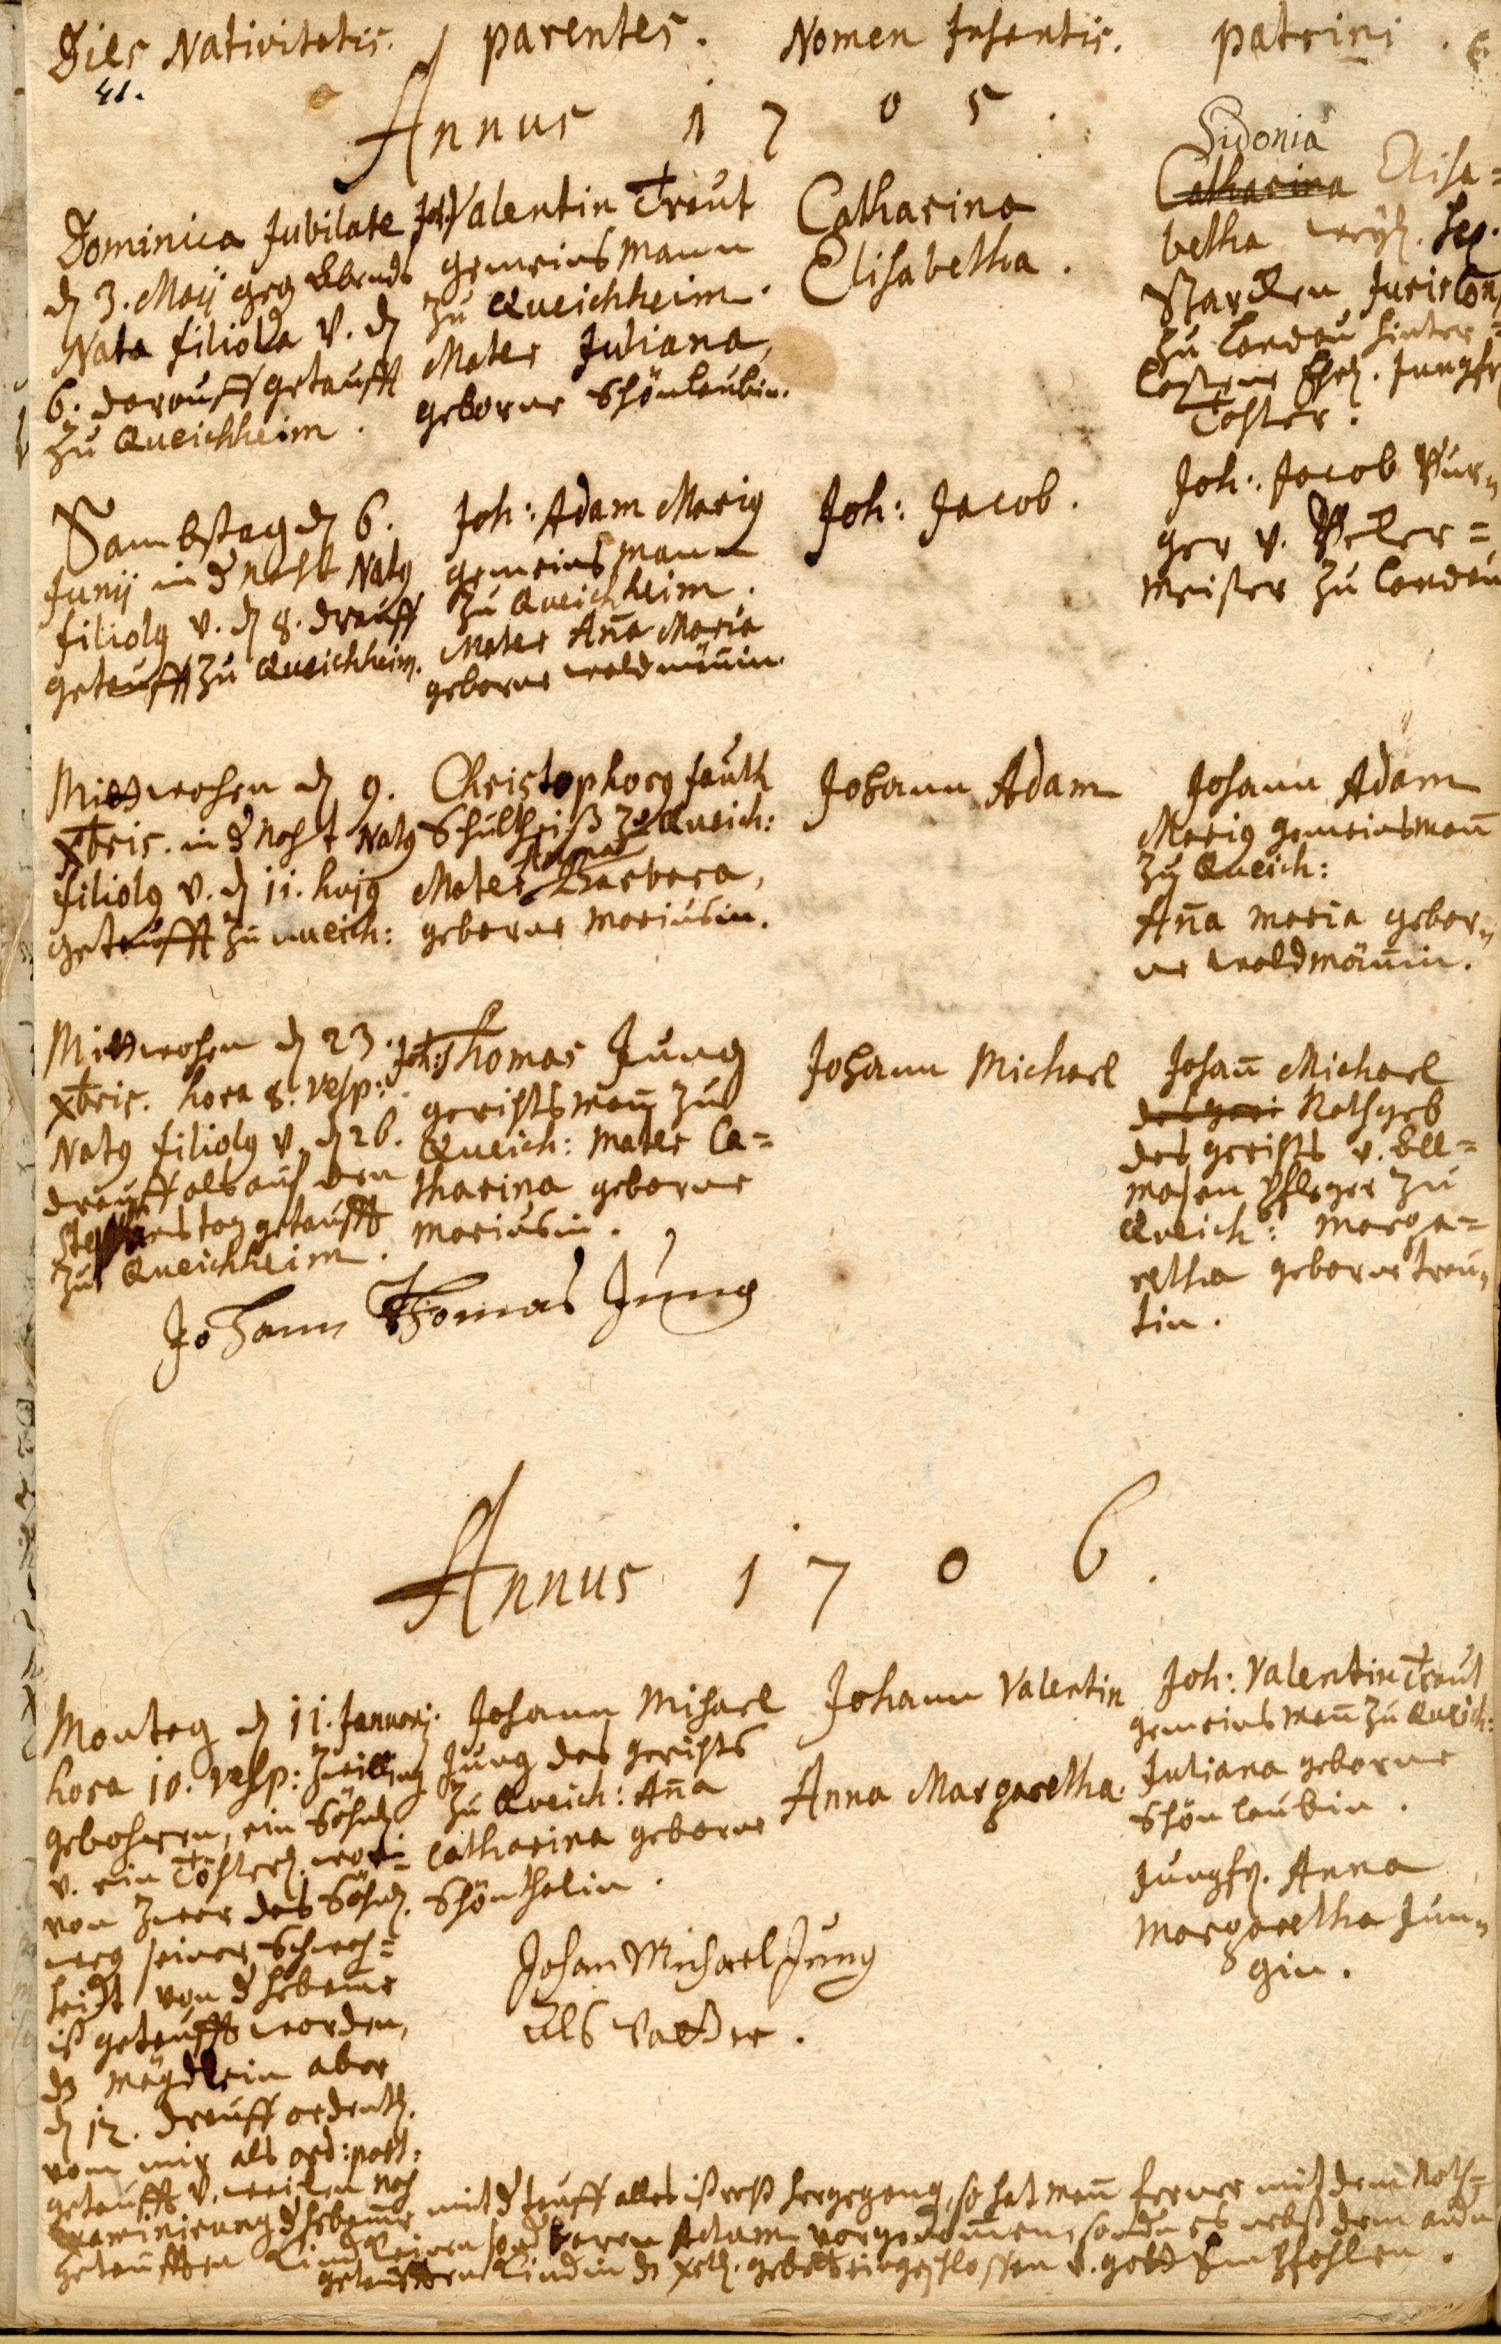 Dies Nativitatis. parentes. Nomen Infantis. patrini.
41.
Annus 1705.
Dominica Jubilate
d 3. Maij geg Abends
Nata filiola v. d
6. darauff getaufft
zu Queichheim.
Joh: Valentin Traut
gemeinsmann
zu Queichheim.
Mater Juliana,
geborne Schönlaubin.
Catharina
Elisabetha.
Sidonia
Catharina Elisa=
betha weyl. H
Starcken Juris Con
zu Landau hinter=
laßene Ehel. Jungfr
Tochter.
Sambstag d 6.
Junij in d Nacht Natg
filiolg v. d 8. drauff
getaufft zu Queichheim.
Joh: Adam Marig
gemeinsmann
zu Queichheim.
Mater Aña Maria
geborne waldmäñin.
Joh: Jacob.
Joh: Jacob Bur=
ger v.
meister zu Landau
Mittwochen d 9.
xbris. in d Nacht Natg
filiolg v. d 11. hujg
getaufft zu Queich:
Christophorg fauth
Schultheiß zu Queich:
Mater Barbara,
geborne Mariusin.
Johann Adam
Johann Adam
Marig gemeinsmañ
zu Queich:
Aña Maria gebor=
ne waldmäñin.
Mittwochen d 23.
xbris. hora 8. vesp:
Natg filiolg v. d 26.
drauff als auf den
Stephanstag getaufft
zu Queichheim.
Joh: Thomas Jung
gerichtsmañ zu
Queich: Mater Ca=
tharina geborne
Mariusin.
Johann Thomas Jung
Johann Michael
Johañ Michael
Rothgeb
des gerichts v. All=
mosen pfleger zu
Queich: Marga=
retha geborne Trau=
tin.
Annus 1706.
Montag d 11. Januarj.
hora 10. vesp: Zwilling
gebohren, ein Söhnl
v. ein Töchterl. wo
von zwar das Söhnl.
weg seiner Schwach=
heit von d hebame
ist getaufft worden,
dz Mägdlein aber
d 12. drauff ordentl.
vom mir als ord: past.
getaufft v. weilen nach
Johann Michael
Jung des gerichts
zu Queich: Aña
Catharina geborne
Schönthalin.
Johan Michael Jung
als Vatter.
Johann Valentin
Anna Margaretha.
Joh: Valentin Traut
gemeinsmañ zu Queich:
Juliana geborne
Schönlaubin.
Jungfr. Anna
Margaretha Jun=
gin.
Examinierung d hebamme mit d tauff alles ist recht hergegang, so hat mañ ferner mit dem Noth=
getaufften Kind keinen sonderbaren Actum vorgenommen, sondn es nebst dem andn
getaufften Kind in dz gebett eingeschlossen v. gott Empfohlen.